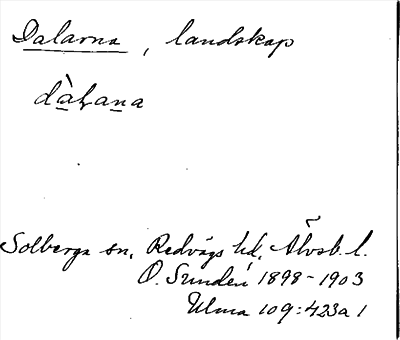 Dalarna, landskap
dàḷana
Solberga sn, Redvägs hd, Älvsb. l.
O. Sundén 1898-1903
Ulma 109:423a 1